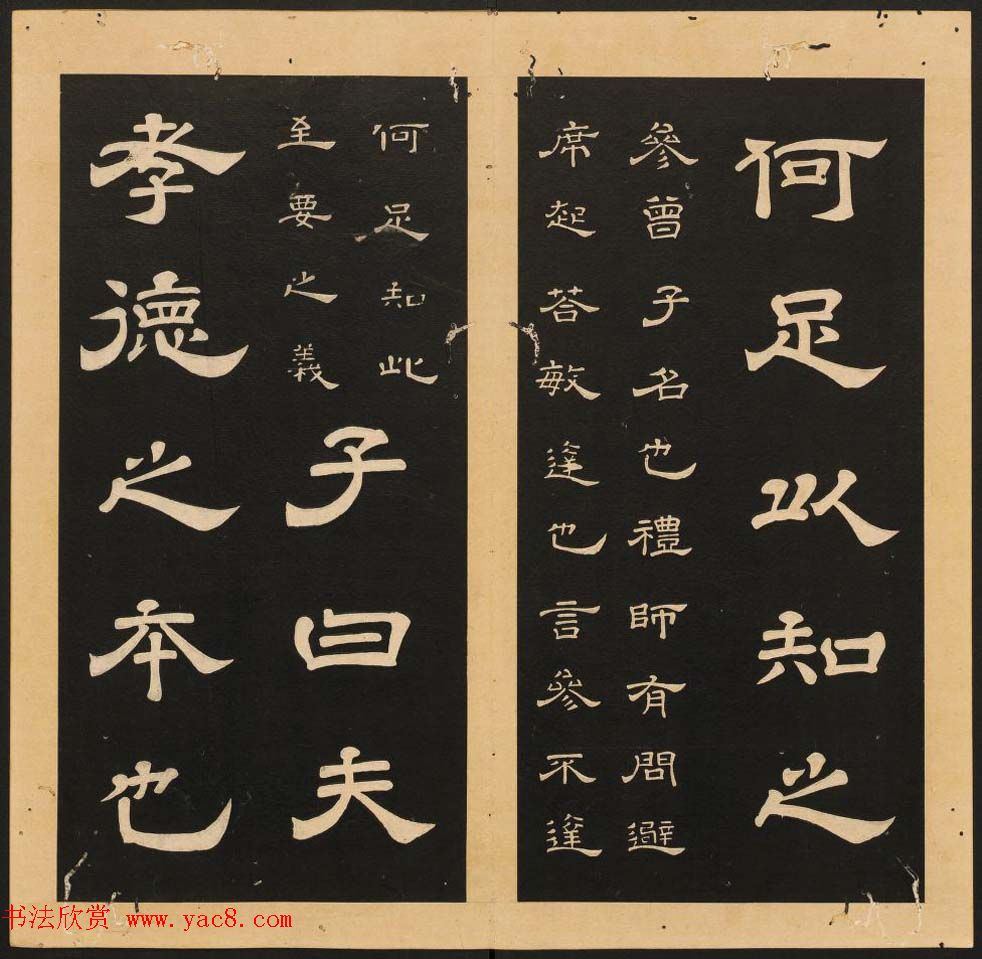 何足以知之
參曾子名也禮師有問避
席起荅敏達也言參不達
何足知此
至要之義
子曰夫
孝德之本也
书法欣赏 www.yac8.com